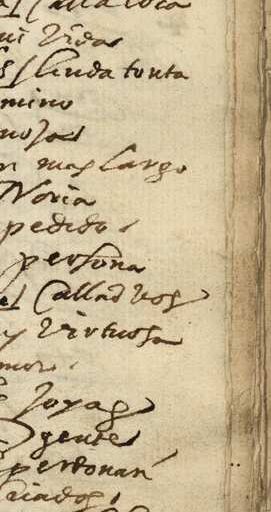 calla loca
mi vida
linda tonta
mino
nosa
mas largo
Noria
pedido
persona
Callad vos
y virtuosa
mor
Joyas
gente
perdonan
ciados